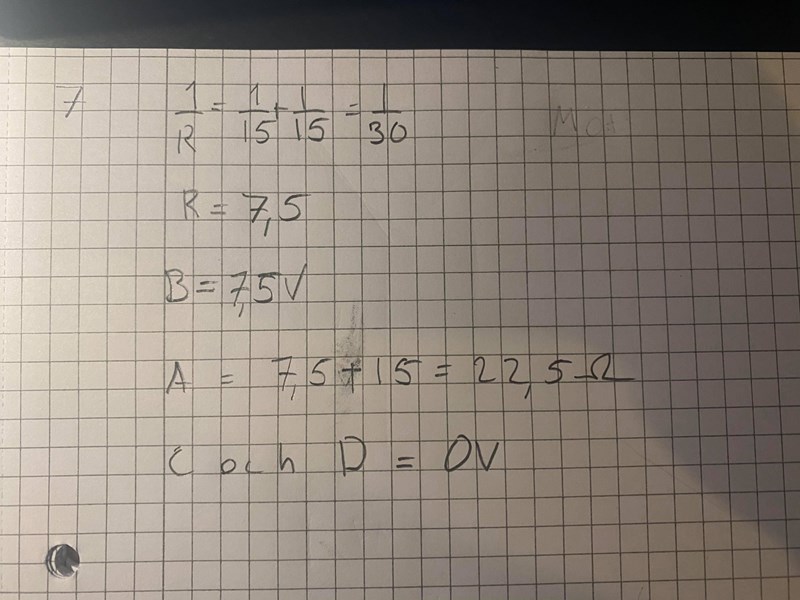 7 1/R = 1/15 + 1/15 = 1/30
R = 7,5
B = 7,5V
A = 7,5 + 15 = 22,5 Ω
C och D = 0V